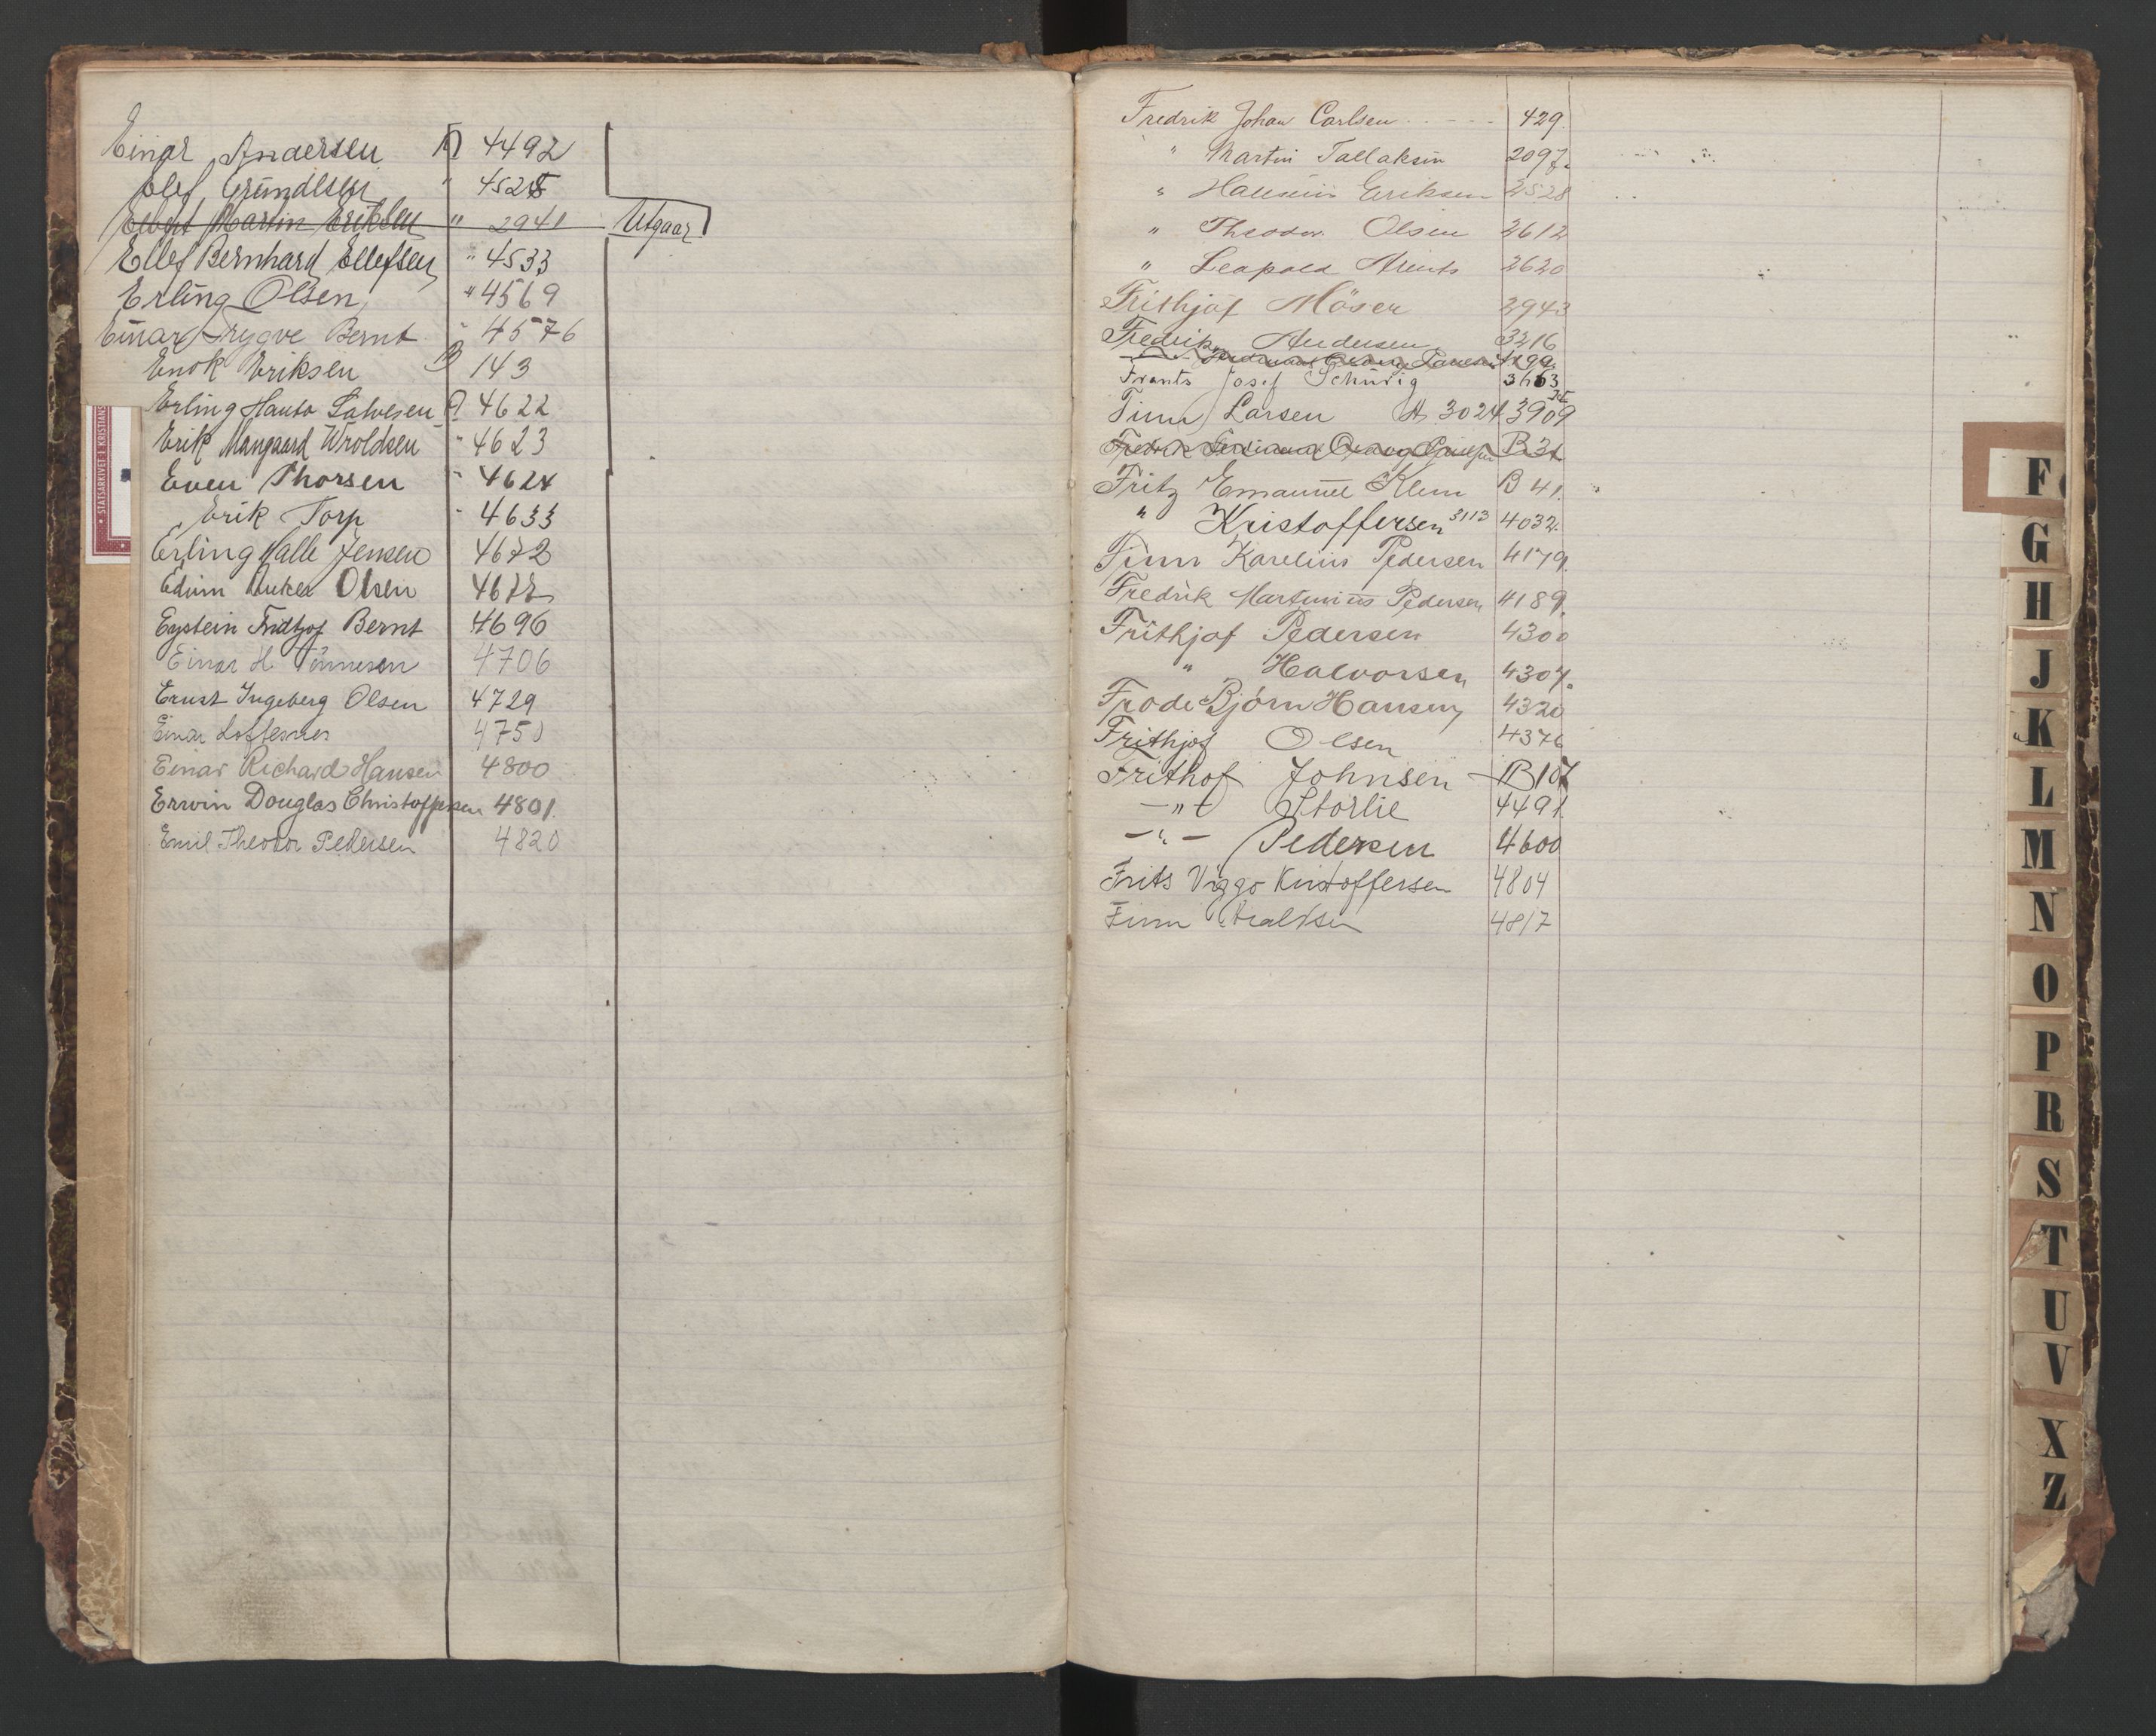 Einar Andersen A 4492
Elef Gründesen " 4528
Elbert Martin Eriksen " 2941 Utgaar
Ellef Bernhard Ellefsen " 4533
Erling Olsen " 4569
Einar Trygve Bernt " 4576
Enok Eriksen B 143
Erling Hauto Salvesen A 4622
Erik Mangaard Wroldsen " 4623
Even Thorsen " 4624
Erik Torp " 4633
Erling Kalle Jensen 4672
Edvin Anker Olsen 4678
Eystein Fridtjof Bernt 4696
Einar H Tönneson 4706
Ernst Ingeberg Olsen 4729
Einar Loftesnes 4750
Einar Richard Hansen 4800
Erwin Douglas Christoffersen 4801.
Emil Theodor Pedersen 4820
STATSARKIVET I KRISTIANS
Fredrik Johan Carlsen 429
" Martin Tallaksen 2097.
" Eriksen 2528
" Theodor Olsen 2612
" Leopold Arents 2620
Frithjof Möser 2943
Fredrik Andersen 3216
Frants Josef Schürig 3663
Finn Larsen A 3024 3909
Fredrik Ferdinand Georg B 31
Fritz Emanuel Klem B 41.
" Kristoffersen 3113 4032.
Finn Karelius Pedersen 4179.
Fredrik Martinius Pedersen 4189.
Frithjof Pedersen 4300
" Halvorsen 4307.
Frode Bjørn Hansen 4320
Frithjof Olsen 4376
Frithof Johnsen B 107
—"— Storlie 4491
—"— Pedersen 4600
Frits Viggo Kristoffersen 4804
Finn 4817
F
G
H
J
K
L
M
N
O
P
R
S
T
U
V
X
Z